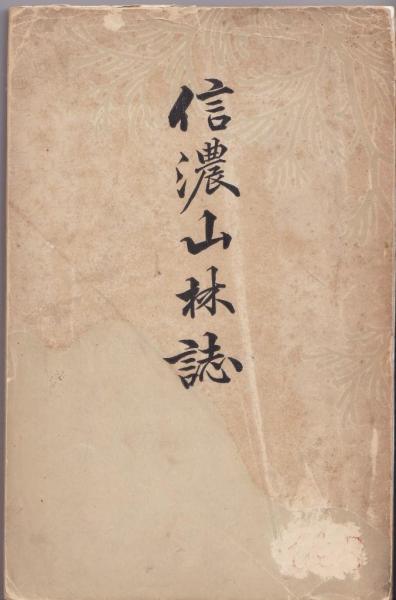 信濃山林誌